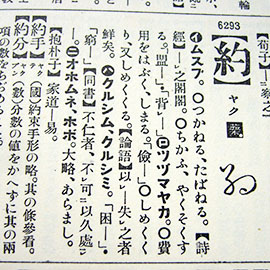 6293
【約】ヤク 藥
㋑ムスブ。〇つかねる、たばねる。【詩
經】―之閣閣。〇ちかふ、やくそくす
る。「盟―」「背―」㋺ツヅマヤカ。〇費
用をはぶく、しまる。「儉―」〇しめくく
り、又しめくくる。【論語】以―失之者
鮮矣。㋩クルシム、クルシミ。「困―」
「窮―」【同書】不仁者、不可以久處
―。㋥オホムネ、ホボ。大略、あらまし。
【抱朴子】家道―易。
約手(國)約束手形の略。其の條參看。
約分(數)分數の値をかへずに其の兩